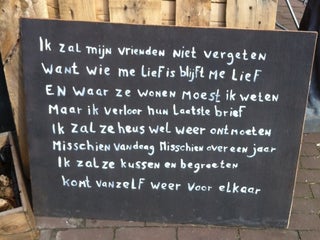 Ik zal mijn vrienden niet vergeten
Want wie me lief is blijft me lief
En waar ze wonen moest ik weten
Maar ik verloor hun laatste brief
Ik zal ze heus wel weer ontmoeten
Misschien vandaag Misschien over een jaar
Ik zal ze kussen en begroeten
komt vanzelf weer voor elkaar